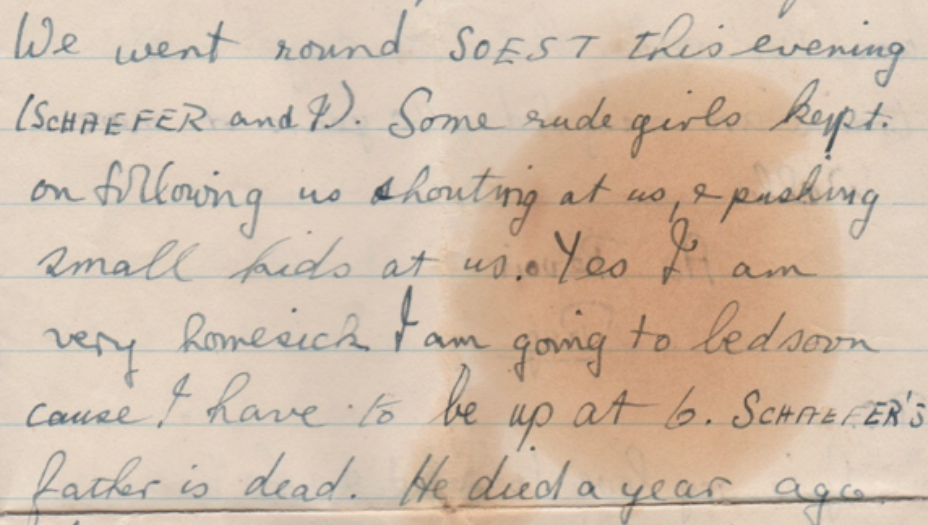 We went round SOEST this evening
(SCHAEFER and I). Some rude girls kept.
on following us shouting at us, & pushing
small kids at us. Yes I am
very homesick I am going to bed soon
cause I have to be up at 6. SCHAEFER'S
father is dead. He died a year ago.